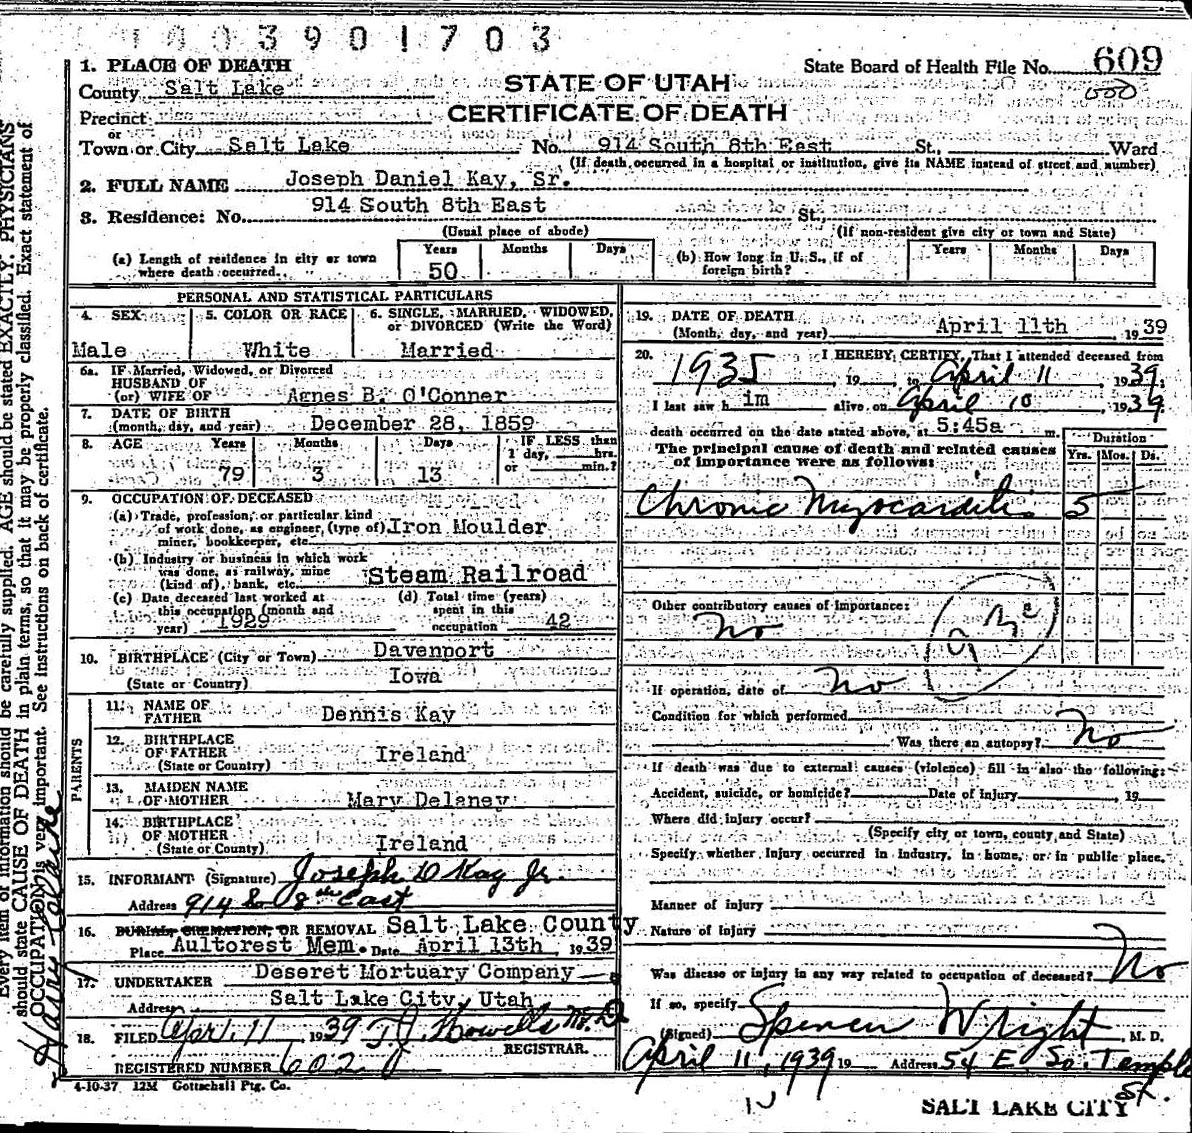 0 0 3 9 0 1 7 0 3
State Board of Health File No. 609
000
STATE OF UTAH
CERTIFICATE OF DEATH
1. PLACE OF DEATH
County Salt Lake
Precinct
or
Town or City Salt Lake No. 914 South 8th East St., Ward
(If death occurred in a hospital or institution, give its NAME instead of street and number)
2. FULL NAME Joseph Daniel Kay, Sr.
3. Residence: No. 914 South 8th East St.,
(Usual place of abode) (If non-resident give city or town and State)
(a) Length of residence in city or town where death occurred. Years 50 Months Days
(b) How long in U. S., if of foreign birth? Years Months Days
PERSONAL AND STATISTICAL PARTICULARS
4. SEX Male
5. COLOR OR RACE White
6. SINGLE, MARRIED, WIDOWED, or DIVORCED (Write the Word) Married
6a. IF Married, Widowed, or Divorced
HUSBAND OF
(or) WIFE OF Agnes B. O'Conner
7. DATE OF BIRTH
(month, day, and year) December 28, 1859
8. AGE Years 79 Months 3 Days 13 IF LESS than 1 day, hrs. or min.?
9. OCCUPATION OF DECEASED
(a) Trade, profession, or particular kind of work done, as engineer, (type of) miner, bookkeeper, etc. Iron Moulder
(b) Industry or business in which work was done, as railway, mine (kind of), bank, etc. Steam Railroad
(c) Date deceased last worked at this occupation (month and year) 1929
(d) Total time (years) spent in this occupation 42
10. BIRTHPLACE (City or Town) Davenport
(State or Country) Iowa
PARENTS
11. NAME OF FATHER Dennis Kay
12. BIRTHPLACE OF FATHER (State or Country) Ireland
13. MAIDEN NAME OF MOTHER Mary Delaney
14. BIRTHPLACE OF MOTHER (State or Country) Ireland
15. INFORMANT (Signature) Joseph D Kay Jr.
Address 914 So 8th East
16. BURIAL, CREMATION, OR REMOVAL Salt Lake County
Place Aultorest Mem. Date April 13th 1939
17. UNDERTAKER Deseret Mortuary Company
Address Salt Lake City, Utah
18. FILED Apr. 11 1939 T J Howells M. D
REGISTRAR.
REGISTERED NUMBER 602
4-10-37 12M Gottschall Ptg. Co.
19. DATE OF DEATH
(Month, day, and year) April 11th 1939
20. I HEREBY CERTIFY, That I attended deceased from
1935, 19 to April 11, 1939.
I last saw him alive on April 10, 1939
death occurred on the date stated above, at 5:45a m.
The principal cause of death and related causes of importance were as follows:
Duration
Yrs. Mos. Ds.
Chronic Myocarditis 5
Other contributory causes of importance:
No
If operation, date of no
Condition for which performed
Was there an autopsy? No
If death was due to external causes (violence) fill in also the following:
Accident, suicide, or homicide? Date of injury , 19
Where did injury occur?
(Specify city or town, county, and State)
Specify whether injury occurred in industry, in home, or in public place.
Manner of injury
Nature of injury
Was disease or injury in any way related to occupation of deceased? No
If so, specify
(Signed) Spencer Wright, M. D.
April 11, 1939 19 Address 54 E. So. Temple St.
SALT LAKE CITY
Every item of information should be carefully supplied. AGE should be stated EXACTLY. PHYSICIANS
should state CAUSE OF DEATH in plain terms, so that it may be properly classified. Exact statement of
OCCUPATION is very important. See instructions on back of certificate.